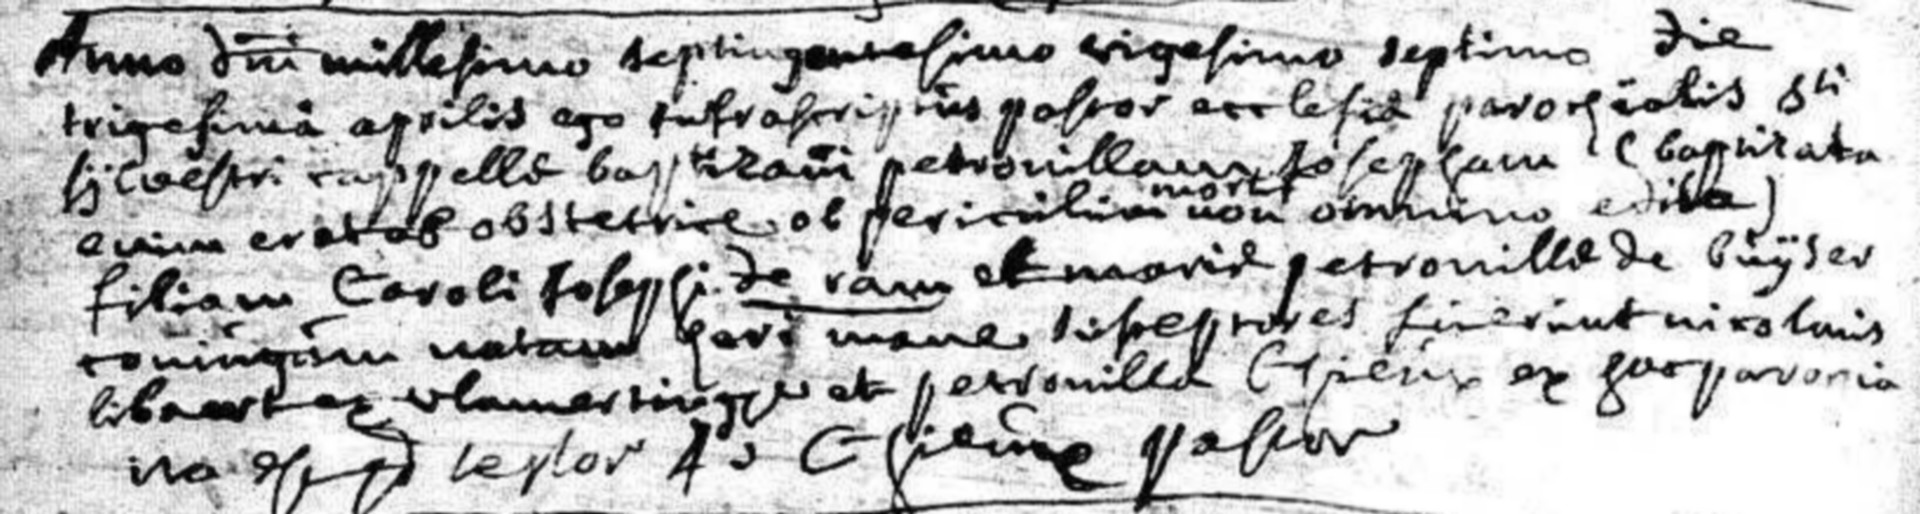 Anno dni millesimo septingentesimo vigesimo septimo die
trigesima aprilis ego infrascriptus pastor ecclesiæ parochialis sti
sijlvestri cappellæ baptizavi petronillam Josepham (baptizata
enim erat ab obstetrice ob periculum mortis non omnino edita)
filiam Caroli Josephi de ram et mariæ petronillæ de buijser
coniugum natam heri mane susceptores fuerunt nicolaus
libaert ex vlamertinghe et petronilla ex hac parocia
ita testor pastor